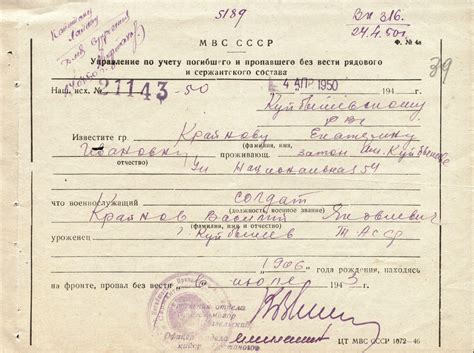 5189
Вх 316.
24.4.50г.
Капитану
МВС СССР
Ф. № 4а
Управление по учету погибшего и пропавшего без вести рядового
и сержантского состава
39
Наш исх. № 21143-50
4 АПР 1950
194 г.
Куйбышевскому
РВК
Известите гр. Крайнову Екатерину
(фамилия, имя,
Ивановну, проживающ. затон им. Куйбышева
отчество)
ул Национальная 54
что военнослужащий солдат
(должность, военное звание)
Крайнов Василий Яковлевич
(фамилия, имя и отчество)
уроженец Куйбышев ТАССР
1906 года рождения, находясь
на фронте, пропал без вести в июле 1943 г.
Начальник отдела
Офицер отдела
ЦТ МВС СССР 1872-46